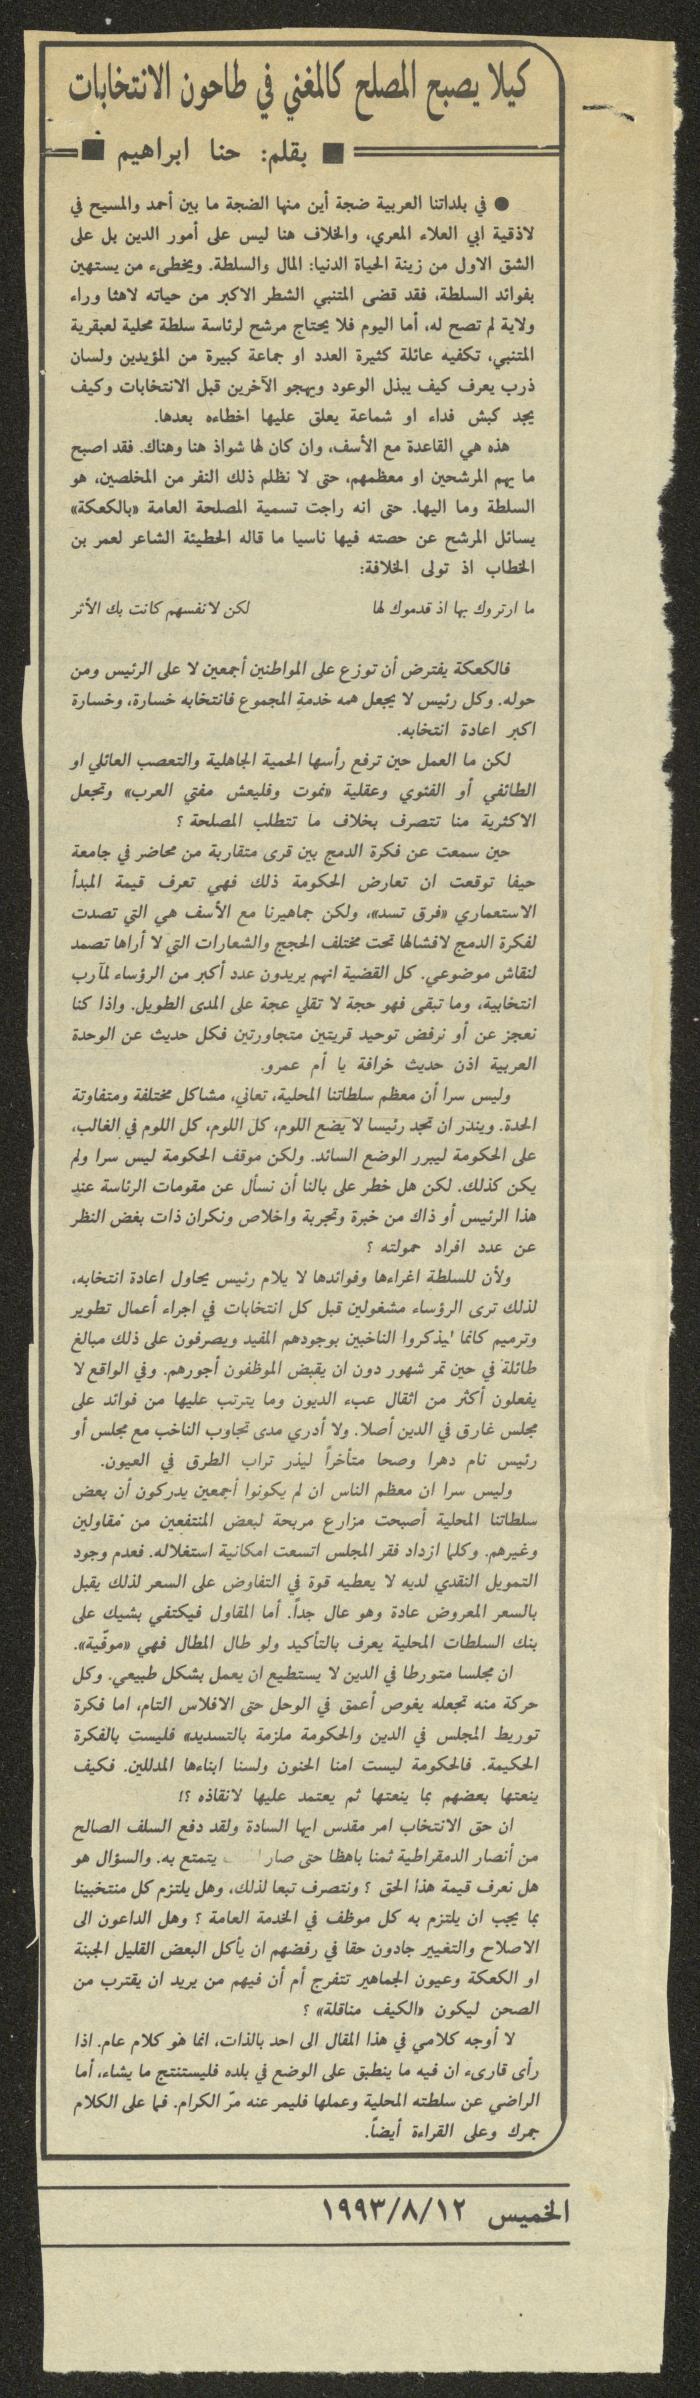 كيلا يصبح المصلح كالمغني في طاحون الانتخابات
■ بقلم: حنا ابراهيم ■
● في بلداتنا العربية ضجة أين منها الضجة ما بين أحمد والمسيح في
لاذقية ابي العلاء المعري، والخلاف هنا ليس على أمور الدين بل على
الشق الاول من زينة الحياة الدنيا: المال والسلطة. ويخطىء من يستهين
بفوائد السلطة، فقد قضى المتنبي الشطر الاكبر من حياته لاهثا وراء
ولاية لم تصح له، أما اليوم فلا يحتاج مرشح لرئاسة سلطة محلية لعبقرية
المتنبي، تكفيه عائلة كثيرة العدد او جماعة كبيرة من المؤيدين ولسان
ذرب يعرف كيف يبذل الوعود ويهجو الآخرين قبل الانتخابات وكيف
يجد كبش فداء او شماعة يعلق عليها اخطاءه بعدها.
هذه هي القاعدة مع الأسف، وان كان لها شواذ هنا وهناك. فقد اصبح
ما يهم المرشحين او معظمهم، حتى لا نظلم ذلك النفر من المخلصين، هو
السلطة وما اليها. حتى انه راجت تسمية المصلحة العامة «بالكعكة»
يسائل المرشح عن حصته فيها ناسيا ما قاله الحطيئة الشاعر لعمر بن
الخطاب اذ تولى الخلافة:
ما ارتروك بها اذ قدموك لها لكن لانفسهم كانت بك الأثر
فالكعكة يفترض أن توزع على المواطنين أجمعين لا على الرئيس ومن
حوله. وكل رئيس لا يجعل همه خدمة المجموع فانتخابه خسارة، وخسارة
اكبر اعادة انتخابه.
لكن ما العمل حين ترفع رأسها الحمية الجاهلية والتعصب العائلي او
الطائفي أو الفئوي وعقلية «نموت وفليعش مفتي العرب» وتجعل
الاكثرية منا تتصرف بخلاف ما تتطلب المصلحة ؟
حين سمعت عن فكرة الدمج بين قرى متقاربة من محاضر في جامعة
حيفا توقعت ان تعارض الحكومة ذلك فهي تعرف قيمة المبدأ
الاستعماري «فرق تسد»، ولكن جماهيرنا مع الأسف هي التي تصدت
لفكرة الدمج لافشالها تحت مختلف الحجج والشعارات التي لا أراها تصمد
لنقاش موضوعي. كل القضية انهم يريدون عدد أكبر من الرؤساء لمآرب
انتخابية، وما تبقى فهو حجة لا تقلي عجة على المدى الطويل. واذا كنا
نعجز عن أو نرفض توحيد قريتين متجاورتين فكل حديث عن الوحدة
العربية اذن حديث خرافة يا أم عمرو.
وليس سرا أن معظم سلطاتنا المحلية، تعاني، مشاكل مختلفة ومتفاوتة
الحدة. ويندر ان تجد رئيسا لا يضع اللوم، كل اللوم، كل اللوم في الغالب،
على الحكومة ليبرر الوضع السائد. ولكن موقف الحكومة ليس سرا ولم
يكن كذلك. لكن هل خطر على بالنا أن نسأل عن مقومات الرئاسة عند
هذا الرئيس أو ذاك من خبرة وتجربة واخلاص ونكران ذات بغض النظر
عن عدد افراد حمولته ؟
ولأن للسلطة اغراءها وفوائدها لا يلام رئيس يحاول اعادة انتخابه،
لذلك ترى الرؤساء مشغولين قبل كل انتخابات في اجراء أعمال تطوير
وترميم كانما ليذكروا الناخبين بوجودهم المفيد ويصرفون على ذلك مبالغ
طائلة في حين تمر شهور دون ان يقبض الموظفون أجورهم. وفي الواقع لا
يفعلون أكثر من اثقال عبء الديون وما يترتب عليها من فوائد على
مجلس غارق في الدين أصلا. ولا أدري مدى تجاوب الناخب مع مجلس أو
رئيس نام دهرا وصحا متأخراً ليذر تراب الطرق في العيون.
وليس سرا ان معظم الناس ان لم يكونوا أجمعين يدركون أن بعض
سلطاتنا المحلية أصبحت مزارع مربحة لبعض المنتفعين من مقاولين
وغيرهم. وكلما ازداد فقر المجلس اتسعت امكانية استغلاله. فعدم وجود
التمويل النقدي لديه لا يعطيه قوة في التفاوض على السعر لذلك يقبل
بالسعر المعروض عادة وهو عال جداً. أما المقاول فيكتفي بشيك على
بنك السلطات المحلية يعرف بالتأكيد ولو طال المطال فهي «موفّية».
ان مجلسا متورطا في الدين لا يستطيع ان يعمل بشكل طبيعي. وكل
حركة منه تجعله يغوص أعمق في الوحل حتى الافلاس التام، اما فكرة
توريط المجلس في الدين والحكومة ملزمة بالتسديد» فليست بالفكرة
الحكيمة. فالحكومة ليست امنا الحنون ولسنا ابناءها المدللين. فكيف
ينعتها بعضهم بما ينعتها ثم يعتمد عليها لانقاذه ؟!
ان حق الانتخاب امر مقدس ايها السادة ولقد دفع السلف الصالح
من أنصار الدمقراطية ثمنا باهظا حتى صار يتمتع به. والسؤال هو
هل نعرف قيمة هذا الحق ؟ ونتصرف تبعا لذلك، وهل يلتزم كل منتخبينا
بما يجب ان يلتزم به كل موظف في الخدمة العامة ؟ وهل الداعون الى
الاصلاح والتغيير جادون حقا في رفضهم ان يأكل البعض القليل الجبنة
او الكعكة وعيون الجماهير تتفرج أم أن فيهم من يريد ان يقترب من
الصحن ليكون «الكيف مناقلة» ؟
لا أوجه كلامي في هذا المقال الى احد بالذات، انما هو كلام عام. اذا
رأى قارىء ان فيه ما ينطبق على الوضع في بلده فليستنتج ما يشاء، أما
الراضي عن سلطته المحلية وعملها فليمر عنه مرّ الكرام. فما على الكلام
جمرك وعلى القراءة أيضاً.
الخميس ١٩٩٣/٨/١٢